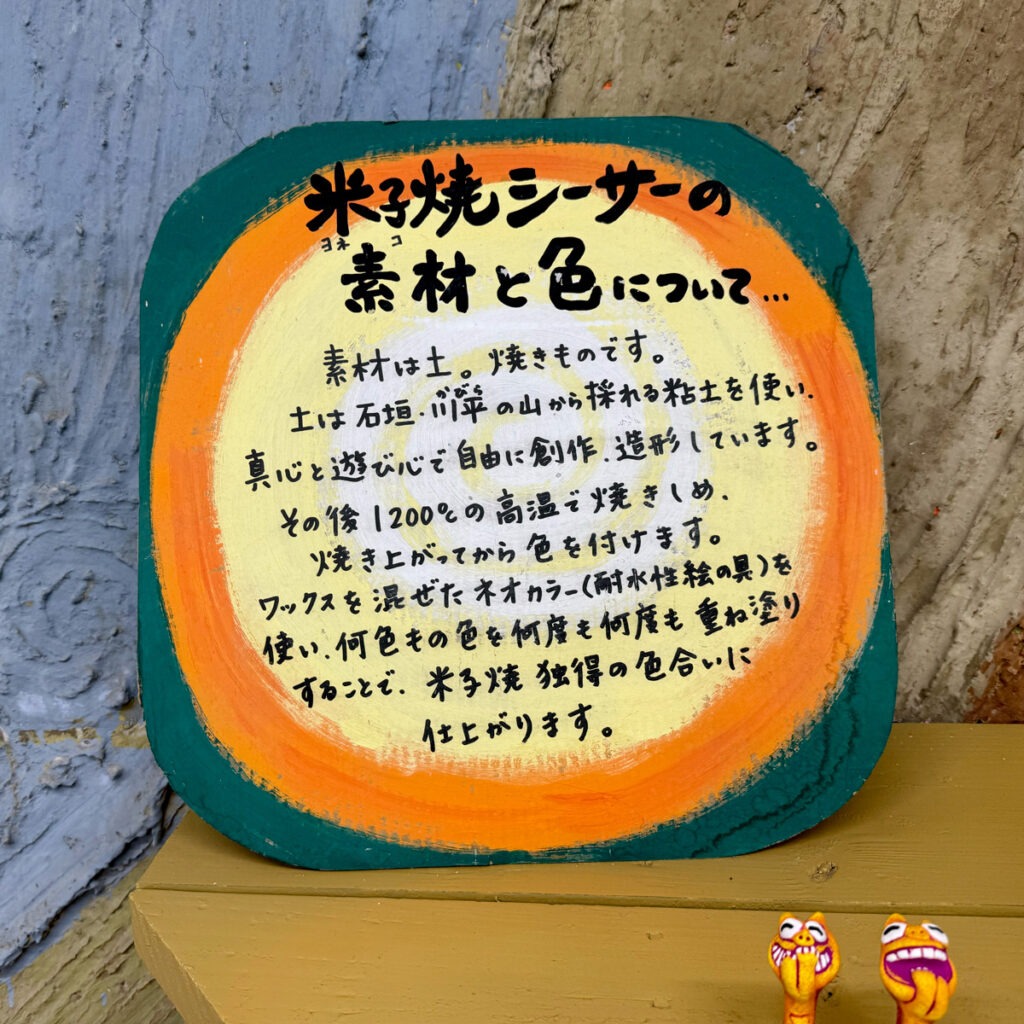 米子焼シーサーの
ヨネ コ
素材と色について…
素材は土。焼きものです。
かびら
土は石垣・川平の山から採れる粘土を使い、
真心と遊び心で自由に創作、造形しています。
その後1200℃の高温で焼きしめ、
焼き上がってから色を付けます。
ワックスを混ぜたネオカラー(耐水性絵の具)を
使い、何色もの色を何度も何度も重ね塗り
することで、米子焼独得の色合いに
仕上がります。